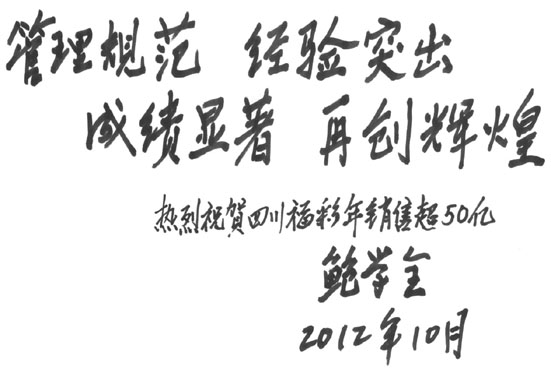 管理规范 经验突出
成绩显著 再创辉煌
热烈祝贺四川福彩年销售超50亿
鲍学全
2012年10月